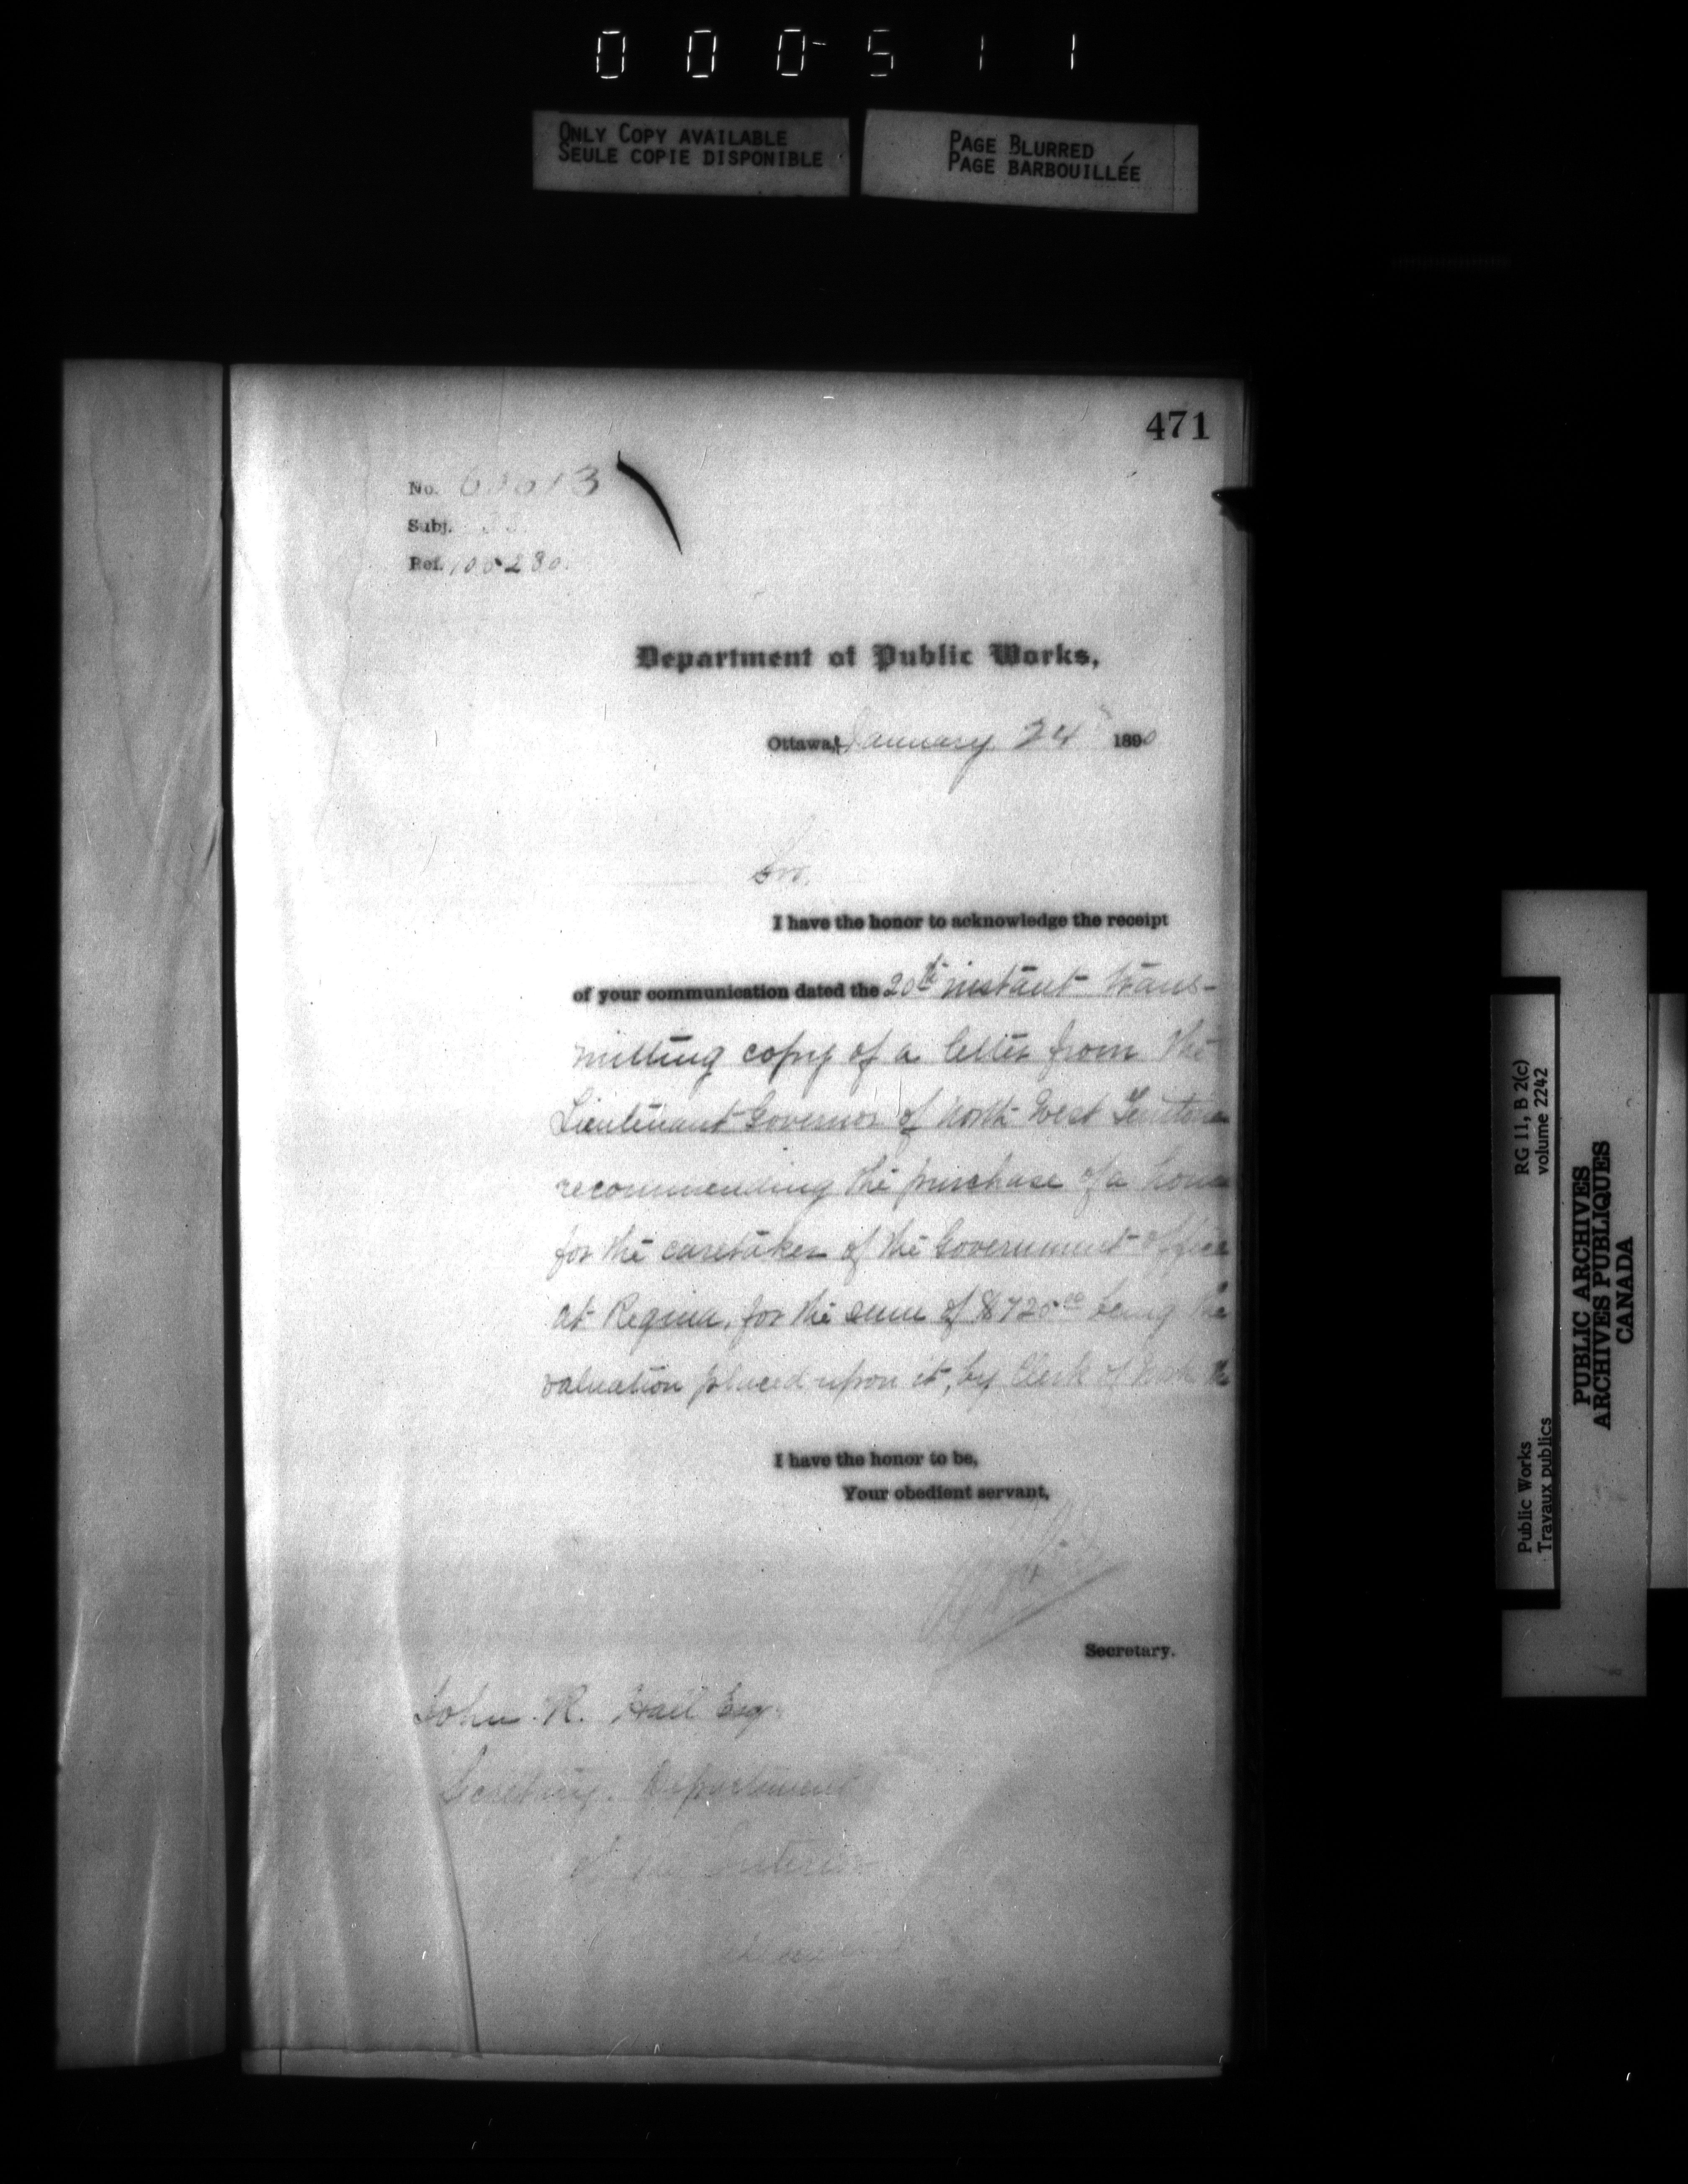 000511
ONLY COPY AVAILABLE
SEULE COPIE DISPONIBLE
PAGE BLURRED
PAGE BARBOUILLÉE
471
No.
Subj.
Ref.
Department of Public Works,
Ottawa, January 24 1890
Sir,
I have the honor to acknowledge the receipt
of your communication dated the 20th instant trans-
mitting copy of a letter from the
Lieutenant Governor of North West
recommending the purchase of a house
for the caretaker of the Government Office
at Regina, for the sum of $720 00 being the
valuation placed upon it, by Clerk of
I have the honor to be,
Your obedient servant,
Secretary.
John R. Hall Esq
Secretary. Department
of the Interior
Public Works
Travaux publics
RG 11, B 2(c)
volume 2242
PUBLIC ARCHIVES
ARCHIVES PUBLIQUES
CANADA